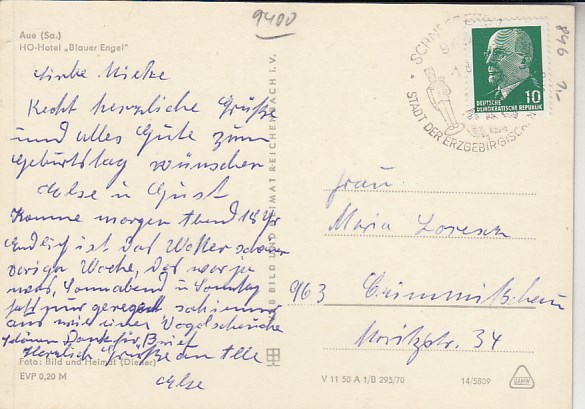 9400
Aue (Sa.)
HO-Hotel „Blauer Engel"
Liebe Mieke
Recht herzliche Grüße
und alles Gute zum
Geburtstag wünschen
Else u Gust
Komme morgen Abend 18 Uhr
Endlich ist das Wetter schöner
vorigen Woche, das war ja
nass, Sonnabend u Sonntag
hatt nur geregent
aus wie einer Vogelscheuche
Schönen Dank für Brief
Herzlich Grüße an Alle
Else
Foto: Bild und Heimat (Dietter)
EVP 0,20 M
VEB BILD UND HEIMAT REICHENBACH I. V.
SCHNEEBERG
STADT DER ERZGEBIRGISCHEN
DEUTSCHE
DEMOKRATISCHE REPUBLIK
10
846
Frau
Maria Lorenz
963 Crimmitschau
Moritzstr. 34
V 11 50 A 1/B 295/70
14/5809